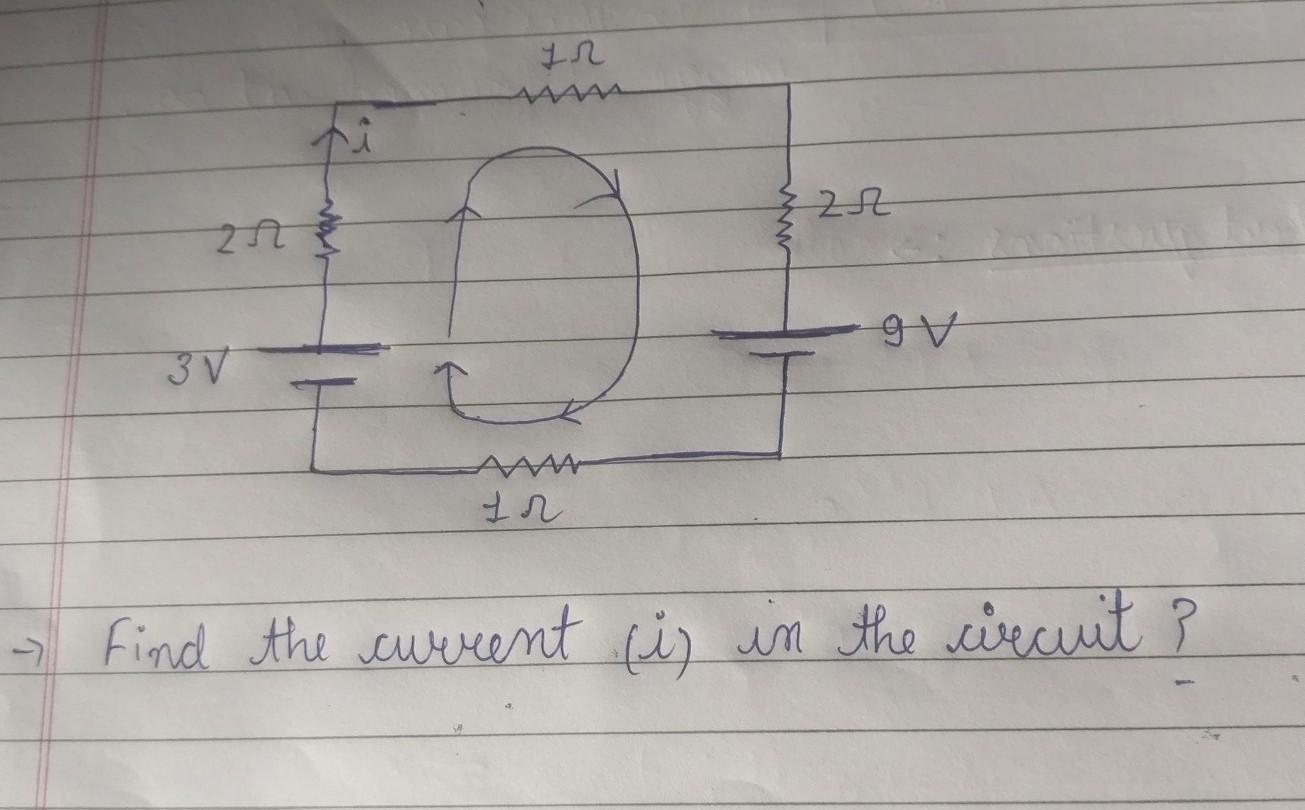 1Ω
i
2Ω
2Ω
3V
9V
1Ω
→ Find the current (i) in the circuit?